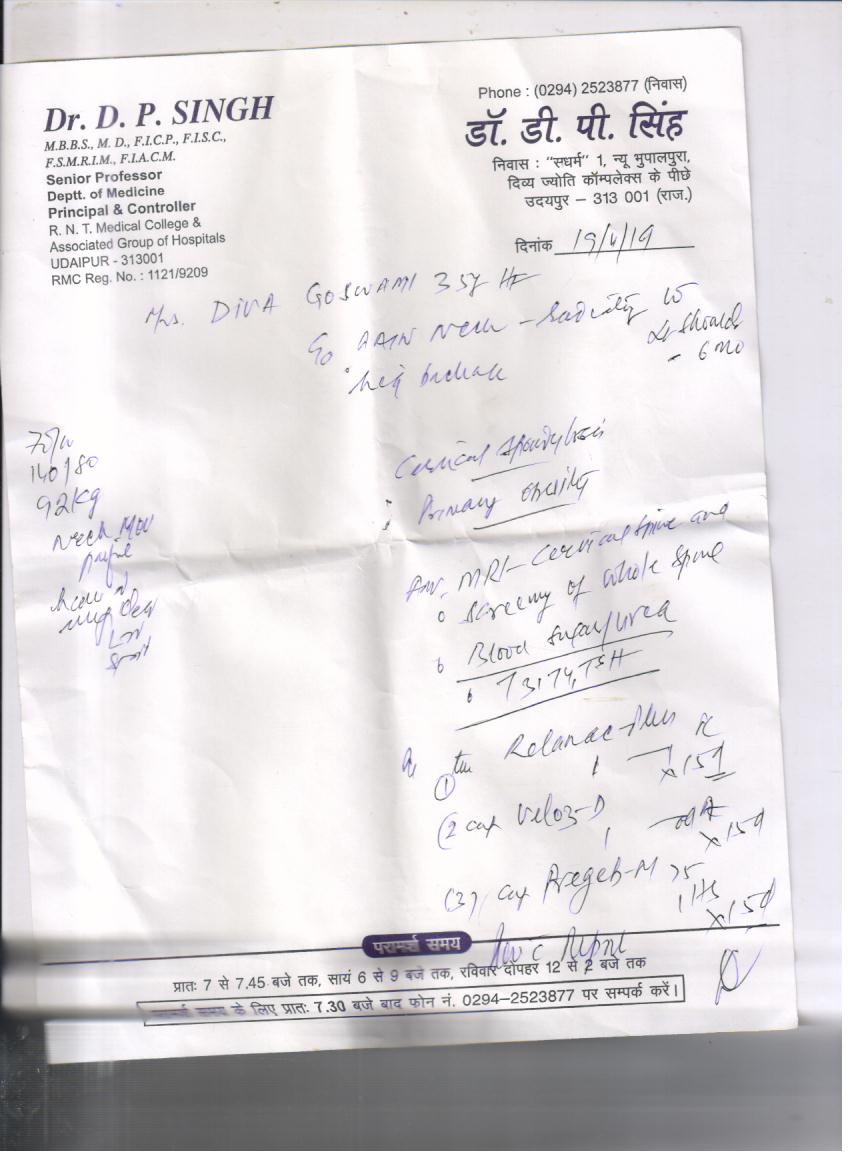 Dr. D. P. SINGH
M.B.B.S., M. D., F.I.C.P., F.I.S.C.,
F.S.M.R.I.M., F.I.A.C.M.
Senior Professor
Deptt. of Medicine
Principal & Controller
R. N. T. Medical College &
Associated Group of Hospitals
UDAIPUR - 313001
RMC Reg. No. : 1121/9209
Phone : (0294) 2523877 (निवास)
डॉ. डी. पी. सिंह
निवास : "सधर्म" 1, न्यू भुपालपुरा,
दिव्य ज्योति कॉम्पलेक्स के पीछे
उदयपुर – 313 001 (राज.)
दिनांक 19/4/19
Mrs. DIVA GOSWAMI 35y
PAIN Neck
Shoulde
- 6 mo
backache
140/80
92kg
Neck Mov
painful
Cervical Spondylosis
Primary Obesity
MRI - Cervical Spine and
Screening of whole Spine
Blood Sugar/urea
T3, T4, TSH
(1) Relanac-Plus
1 x 15d
(2 cap Veloz-D
1 x 15d
(3) cap Pregeb-M 75
1 HS
x 15d
परामर्श समय
प्रातः 7 से 7.45 बजे तक, सायं 6 से 9 बजे तक, रविवार दोपहर 12 से 2 बजे तक
परामर्श समय के लिए प्रातः 7.30 बजे बाद फोन नं. 0294–2523877 पर सम्पर्क करें।